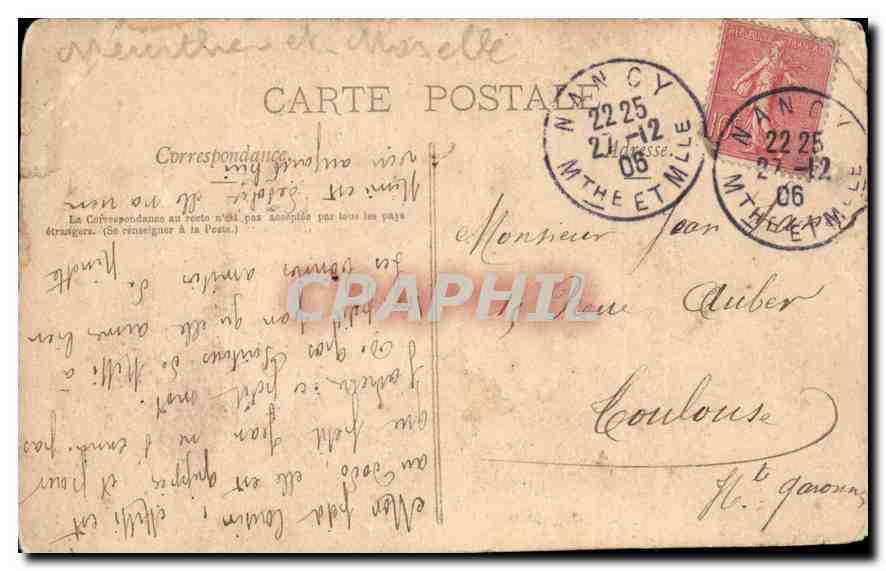 Meurthe et Moselle
CARTE POSTALE
Correspondance
Adresse
La Correspondance au recto n'est pas acceptée par tous les pays
étrangers. (Se renseigner à la Poste.)
NANCY
22 25
27-12
06
MTHE ET MLLE
NANCY
22 25
27-12
06
MTHE ET MLLE
10
Monsieur Jean
Rue Auber
Toulouse
Hte Garonne
Mon petit cousin, Melli est
au dodo, elle est grippée, et pour
que petit Jean ne s'ennuie pas
j'achète ce petit mot.
De gros de Melli à
petit Jean qu'elle aime bien
Les bonnes amitiés de Ninette
Mimi est elle n'a rien
aujourd'hui
CPAPHIL